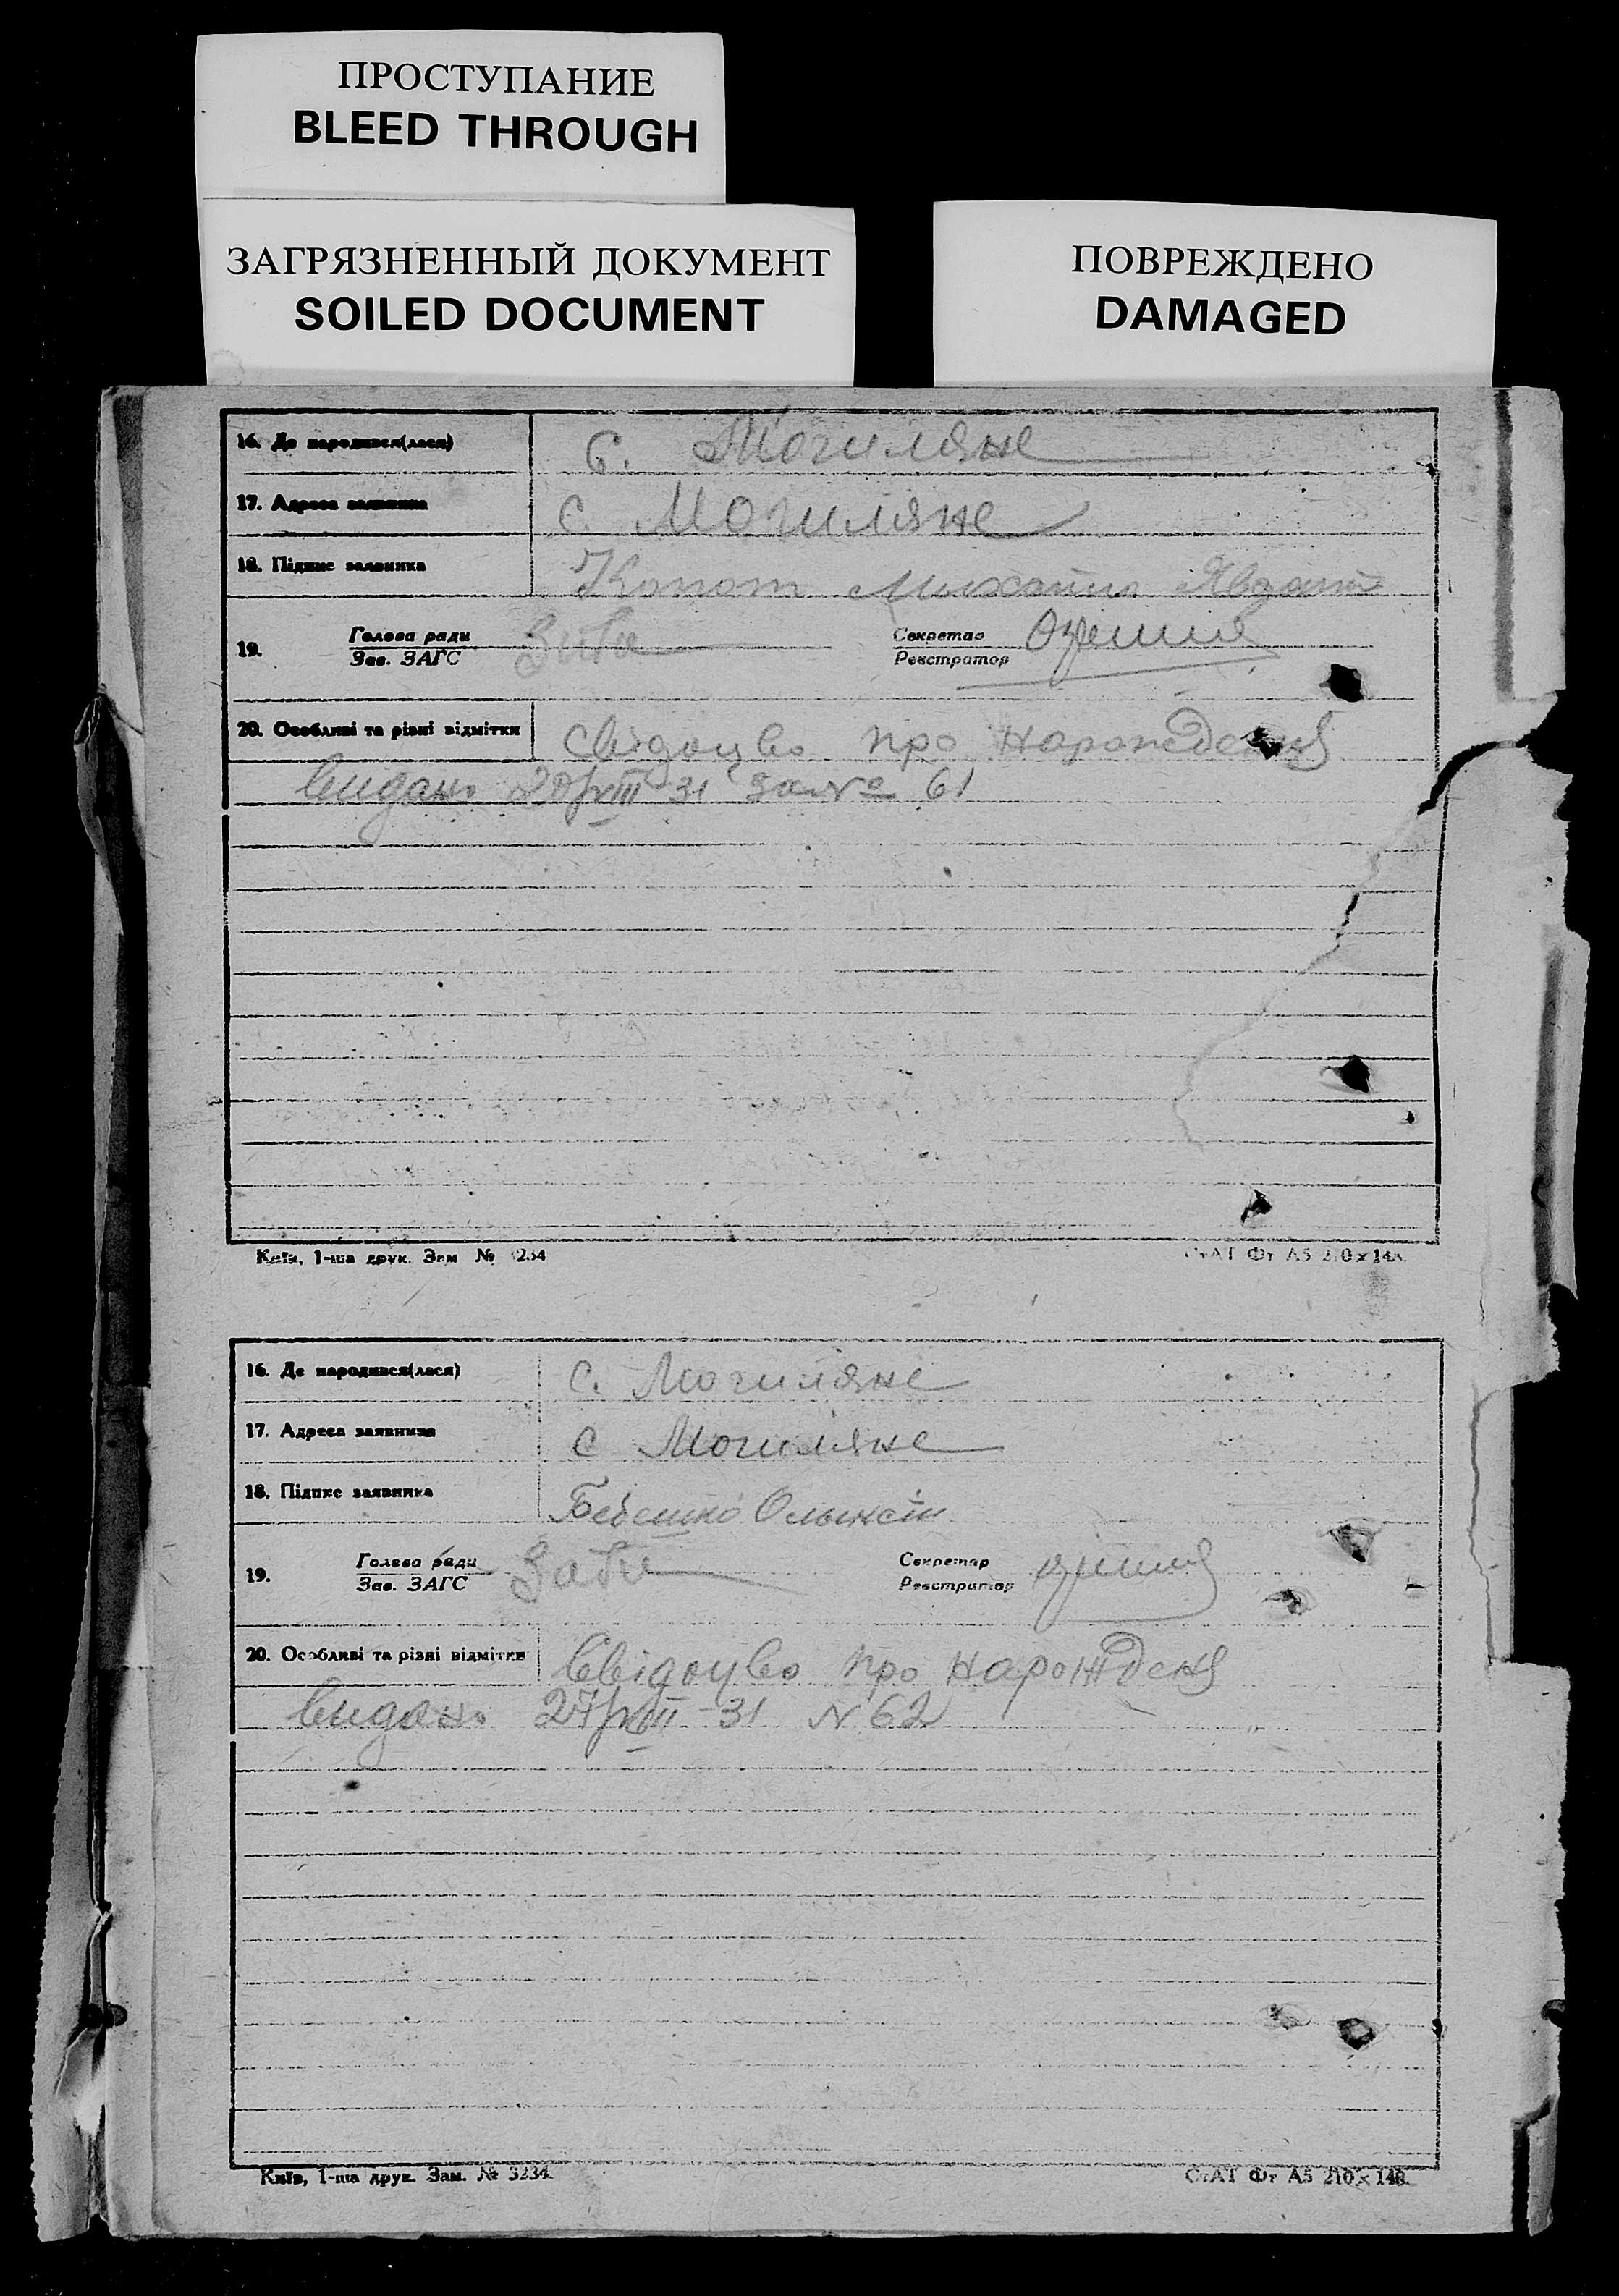 ПРОСТУПАНИЕ
BLEED THROUGH
ЗАГРЯЗНЕННЫЙ ДОКУМЕНТ
SOILED DOCUMENT
ПОВРЕЖДЕНО
DAMAGED
16. Де народився(лася) с. Могиляне
17. Адреса заявника с. Могиляне
18. Підпис заявника Михайло
19. Голова ради Секретар
Зав. ЗАГС Реєстратор
20. Особливі та різні відмітки Свідоцво про Нарождення
Видано 20/VIII 31 за № 61
Київ, 1-ша друк. Зам № 3234 СтАТ Фт А5 210×148.
16. Де народився(лася) с. Могиляне
17. Адреса заявника с Могиляне
18. Підпис заявника
19. Голова ради Секретар
Зав. ЗАГС Реєстратор
20. Особливі та різні відмітки Свідоцво про нарожденя
Видано 27/VIII-31 N 62
Київ, 1-ша друк. Зам. № 3234. СтАТ Фт А5 210×148.